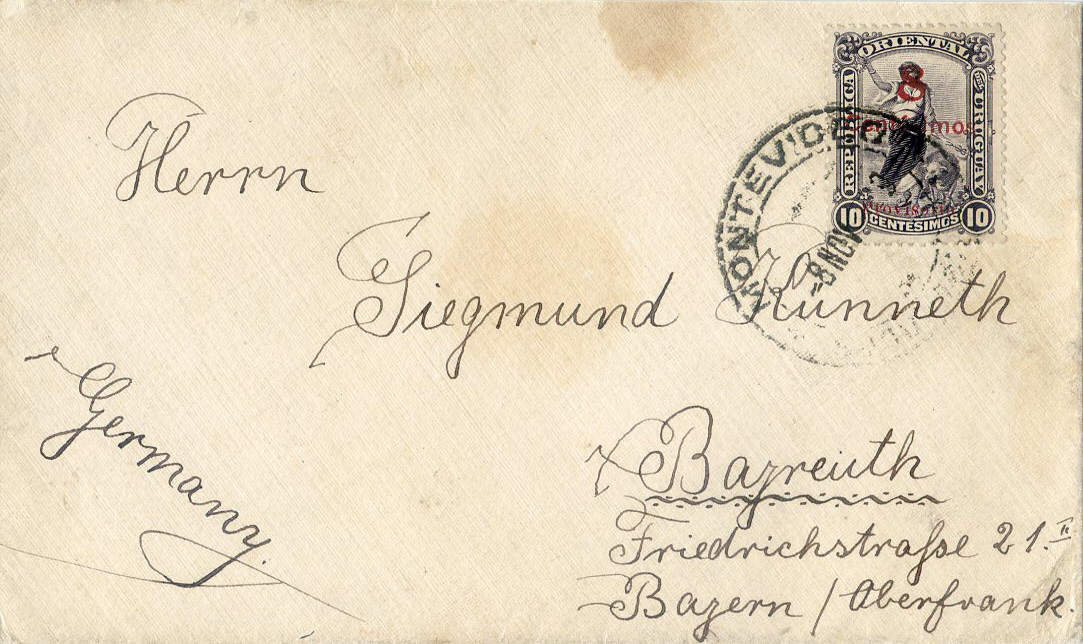 ORIENTAL
REPUBLICA
DEL URUGUAY
8
Centésimos
PROVISORIO
10 CENTESIMOS 10
MONTEVIDEO
-8 NOV
Herrn
Siegmund Künneth
Germany.
Bayreuth
Friedrichstraſse 21.II
Bayern / Oberfrank.